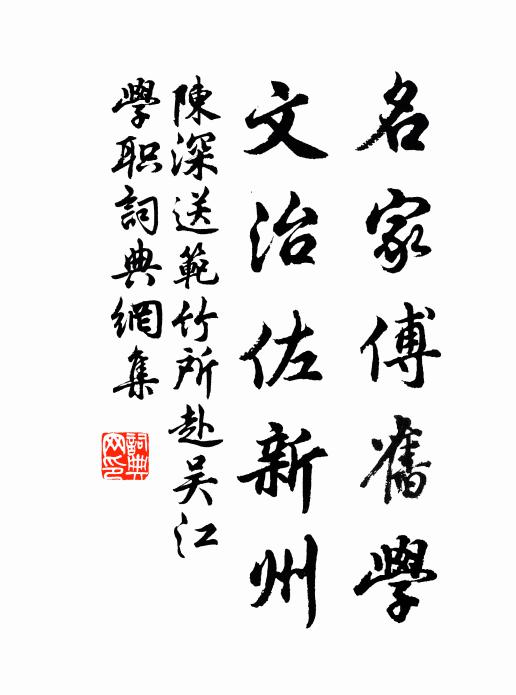 名家傅舊學
文治佐新州
陳深送範竹所赴吴江
學职詞典網集
詞典
网印